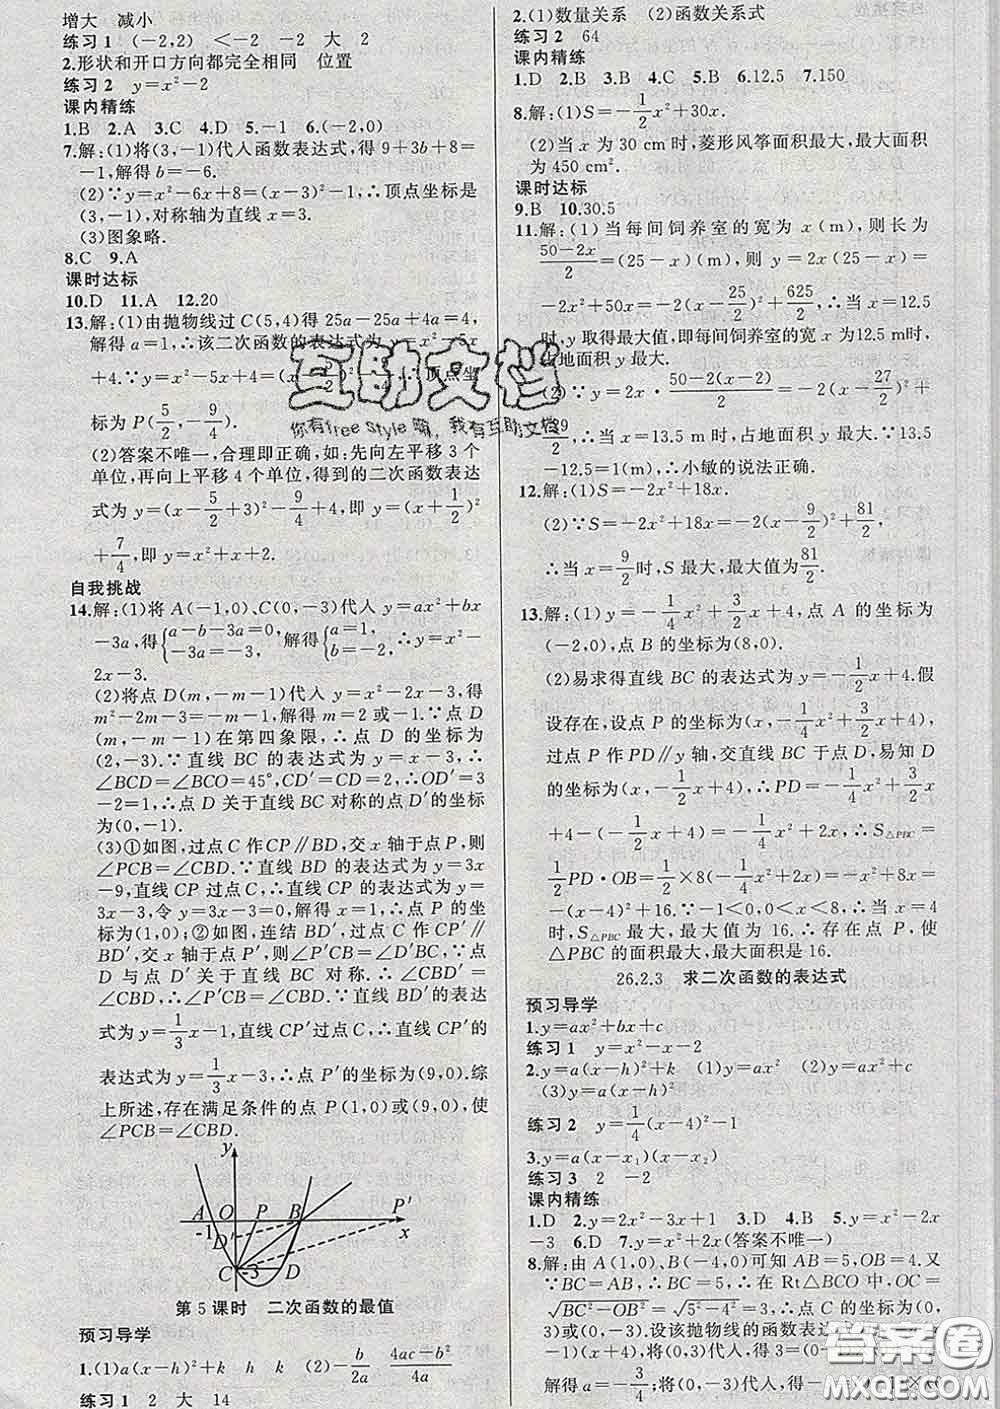 增大　减小
练习1　(－2,2)　＜－2　－2　大　2
2.形状和开口方向都完全相同　位置
练习2　y=x²－2
课内精练
1.B　2.A　3.C　4.D　5.－1　6.(－2,0)
7.解:(1)将(3,－1)代人函数表达式,得9+3b+8=
－1,解得b=－6.
(2)∵y=x²－6x+8=(x－3)²－1,∴顶点坐标是
(3,－1),对称轴为直线x=3.
(3)图象略.
8.C　9.A
课时达标
10.D　11.A　12.20
13.解:(1)由抛物线过C(5,4)得25a－25a+4a=4,
解得a=1,∴该二次函数的表达式为y=x²－5x
+4.∵y=x²－5x+4=(x
∴顶点坐
标为P(5/2,－9/4).
(2)答案不唯一,合理即正确,如:先向左平移3个
单位,再向上平移4个单位,得到的二次函数表达
式为y=(x－5/2+3)²－9/4+4,即y=(x+1/2)²
+7/4,即y=x²+x+2.
自我挑战
14.解:(1)将A(－1,0)、C(0,－3)代人y=ax²+bx
－3a,得{a－b－3a=0, －3a=－3, 解得{a=1, b=－2, ∴y=x²－
2x－3.
(2)将点D(m,－m－1)代人y=x²－2x－3,得
m²－2m－3=－m－1,解得m=2或－1.∵点
D(m,－m－1)在第四象限,∴点D的坐标为
(2,－3).∵直线BC的表达式为y=x－3,∴
∠BCD=∠BCO=45°,CD′=CD=2,∴OD′=3
－2=1,∴点D关于直线BC对称的点D′的坐标
为(0,－1).
(3)①如图,过点C作CP∥BD,交x轴于点P,则
∠PCB=∠CBD.∵直线BD的表达式为y=3x
－9,直线CP过点C,∴直线CP的表达式为y=
3x－3,令y=3x－3=0,解得x=1,∴点P的坐标
为(1,0);②如图,连结BD′,过点C作CP′∥
BD′,交x轴于点P′,则∠P′CB=∠D′BC,∵点
D与点D′关于直线BC对称.∴∠CBD′=
∠CBD,∴∠P′CB=∠CBD.∵直线BD′的表达
式为y=1/3x－1,∴直线CP′过点C,∴直线CP′的
表达式为y=1/3x－3,∴点P′的坐标为(9,0).综
上所述,存在满足条件的点P(1,0)或(9,0),使
∠PCB=∠CBD.
y
A　O　P　B　P′
－1　D′　x
C　－3　D
第5课时　二次函数的最值
预习导学
1.(1)a(x－h)²+k　h　k　(2)－b/2a　(4ac－b²)/4a
练习1　2　大　14
2.(1)数量关系　(2)函数关系式
练习2　64
课内精练
1.D　2.B　3.B　4.C　5.B　6.12.5　7.150
8.解:(1)S=－1/2x²+30x.
(2)当x为30 cm时,菱形风筝面积最大,最大面积
为450 cm².
课时达标
9.B　10.30.5
11.解:(1)当每间饲养室的宽为x(m),则长为
(50－2x)/2=(25－x)(m),则y=2x(25－x)=
－2x²+50x=－2(x－25/2)²+625/2,∴当x=12.5
时,y取得最大值,即每间饲养室的宽x为12.5 m时,
占地面积y最大.
(2)∵y=2x·(50－2(x－2))/2=－2(x－27/2)²+
729/2,∴当x=13.5 m时,占地面积y最大.∵13.5
－12.5=1(m),∴小敏的说法正确.
12.解:(1)S=－2x²+18x.
(2)∵S=－2x²+18x=－2(x－9/2)²+81/2,
∴当x=9/2时,S最大,最大值为81/2.
13.解:(1)y=－1/4x²+3/2x+4,点A的坐标为
(－2,0),点B的坐标为(8,0).
(2)易求得直线BC的表达式为y=－1/2x+4.假
设存在,设点P的坐标为(x,－1/4x²+3/2x+4),
过点P作PD∥y轴,交直线BC于点D,易知D
的坐标为(x,－1/2x+4),∴PD=－1/4x²+3/2x
+4－(－1/2x+4)=－1/4x²+2x,∴S△PBC=
1/2PD·OB=1/2×8(－1/4x²+2x)=－x²+8x=
－(x－4)²+16.∵－1<0,0<x<8,∴当x=4
时,S△PBC最大,最大值为16.∴存在点P,使
△PBC的面积最大,最大面积是16.
26.2.3　求二次函数的表达式
预习导学
1.y=ax²+bx+c
练习1　y=x²－x－2
2.y=a(x－h)²+k　(1)y=ax²　(2)y=ax²+c
(3)y=a(x－h)²
练习2　y=1/4(x－4)²－1
3.y=a(x－x₁)(x－x₂)
练习3　2　－2
课内精练
1.D　2.y=2x²－3x+1　3.D　4.B　5.y=x²－2x
－3　6.D　7.y=x²+2x(答案不唯一)
8.解:由A(1,0)、B(－4,0)可知AB=5,OB=4.又
∵BC=AB,∴BC=5,∴在Rt△BCO中,OC=
√BC²－OB²=√5²－4²=3,∴点C的坐标为(0,
3)或(0,－3).设该抛物线的函数表达
－1)(x+4),将(0,3)代人,得3=(0
解得a=－3/4;将(0,－3)代人,得－3=
互助文档
你有free Style嘛,我有互助文档
答案圈
MXQE.COM